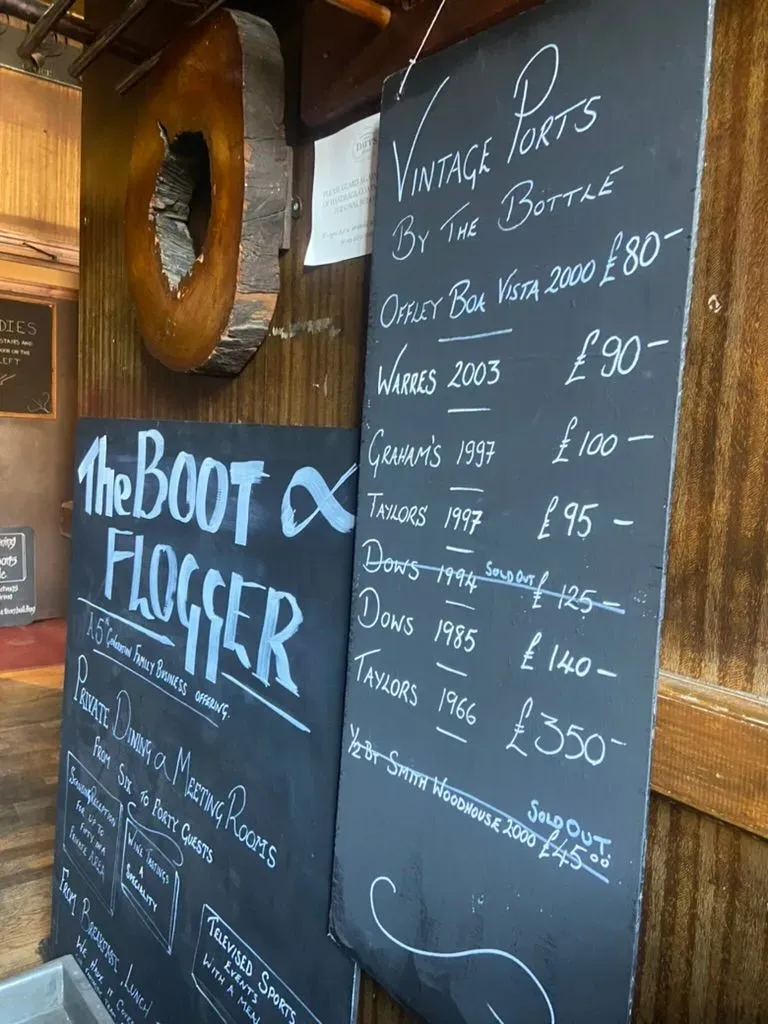 VINTAGE PORTS
BY THE BOTTLE
OFFLEY BOA VISTA 2000 £80-
WARRES 2003 £90-
GRAHAM'S 1997 £100-
TAYLORS 1997 £95-
DOWS 1994 SOLD OUT £125-
DOWS 1985 £140-
TAYLORS 1966 £350-
1/2 BT SMITH WOODHOUSE 2000 £45.00
SOLD OUT
The BOOT
FLOGGER
A 5th GENERATION FAMILY BUSINESS OFFERING.
PRIVATE DINING & MEETING ROOMS
FROM SIX TO FORTY GUESTS
STANDING RECEPTION
FOR UP TO
FIFTY IN A
PRIVATE AREA
WINE TASTINGS
A
SPECIALITY
TELEVISED SPORTS
EVENTS
WITH A MEAL
FROM BREAKFAST, LUNCH
WE HAVE IT
DIES
STAIRS AND
ON THE
LEFT
PLEASE GUARD
OF HANDBAGS,
PERSONAL